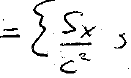 = { Sx/c² ,